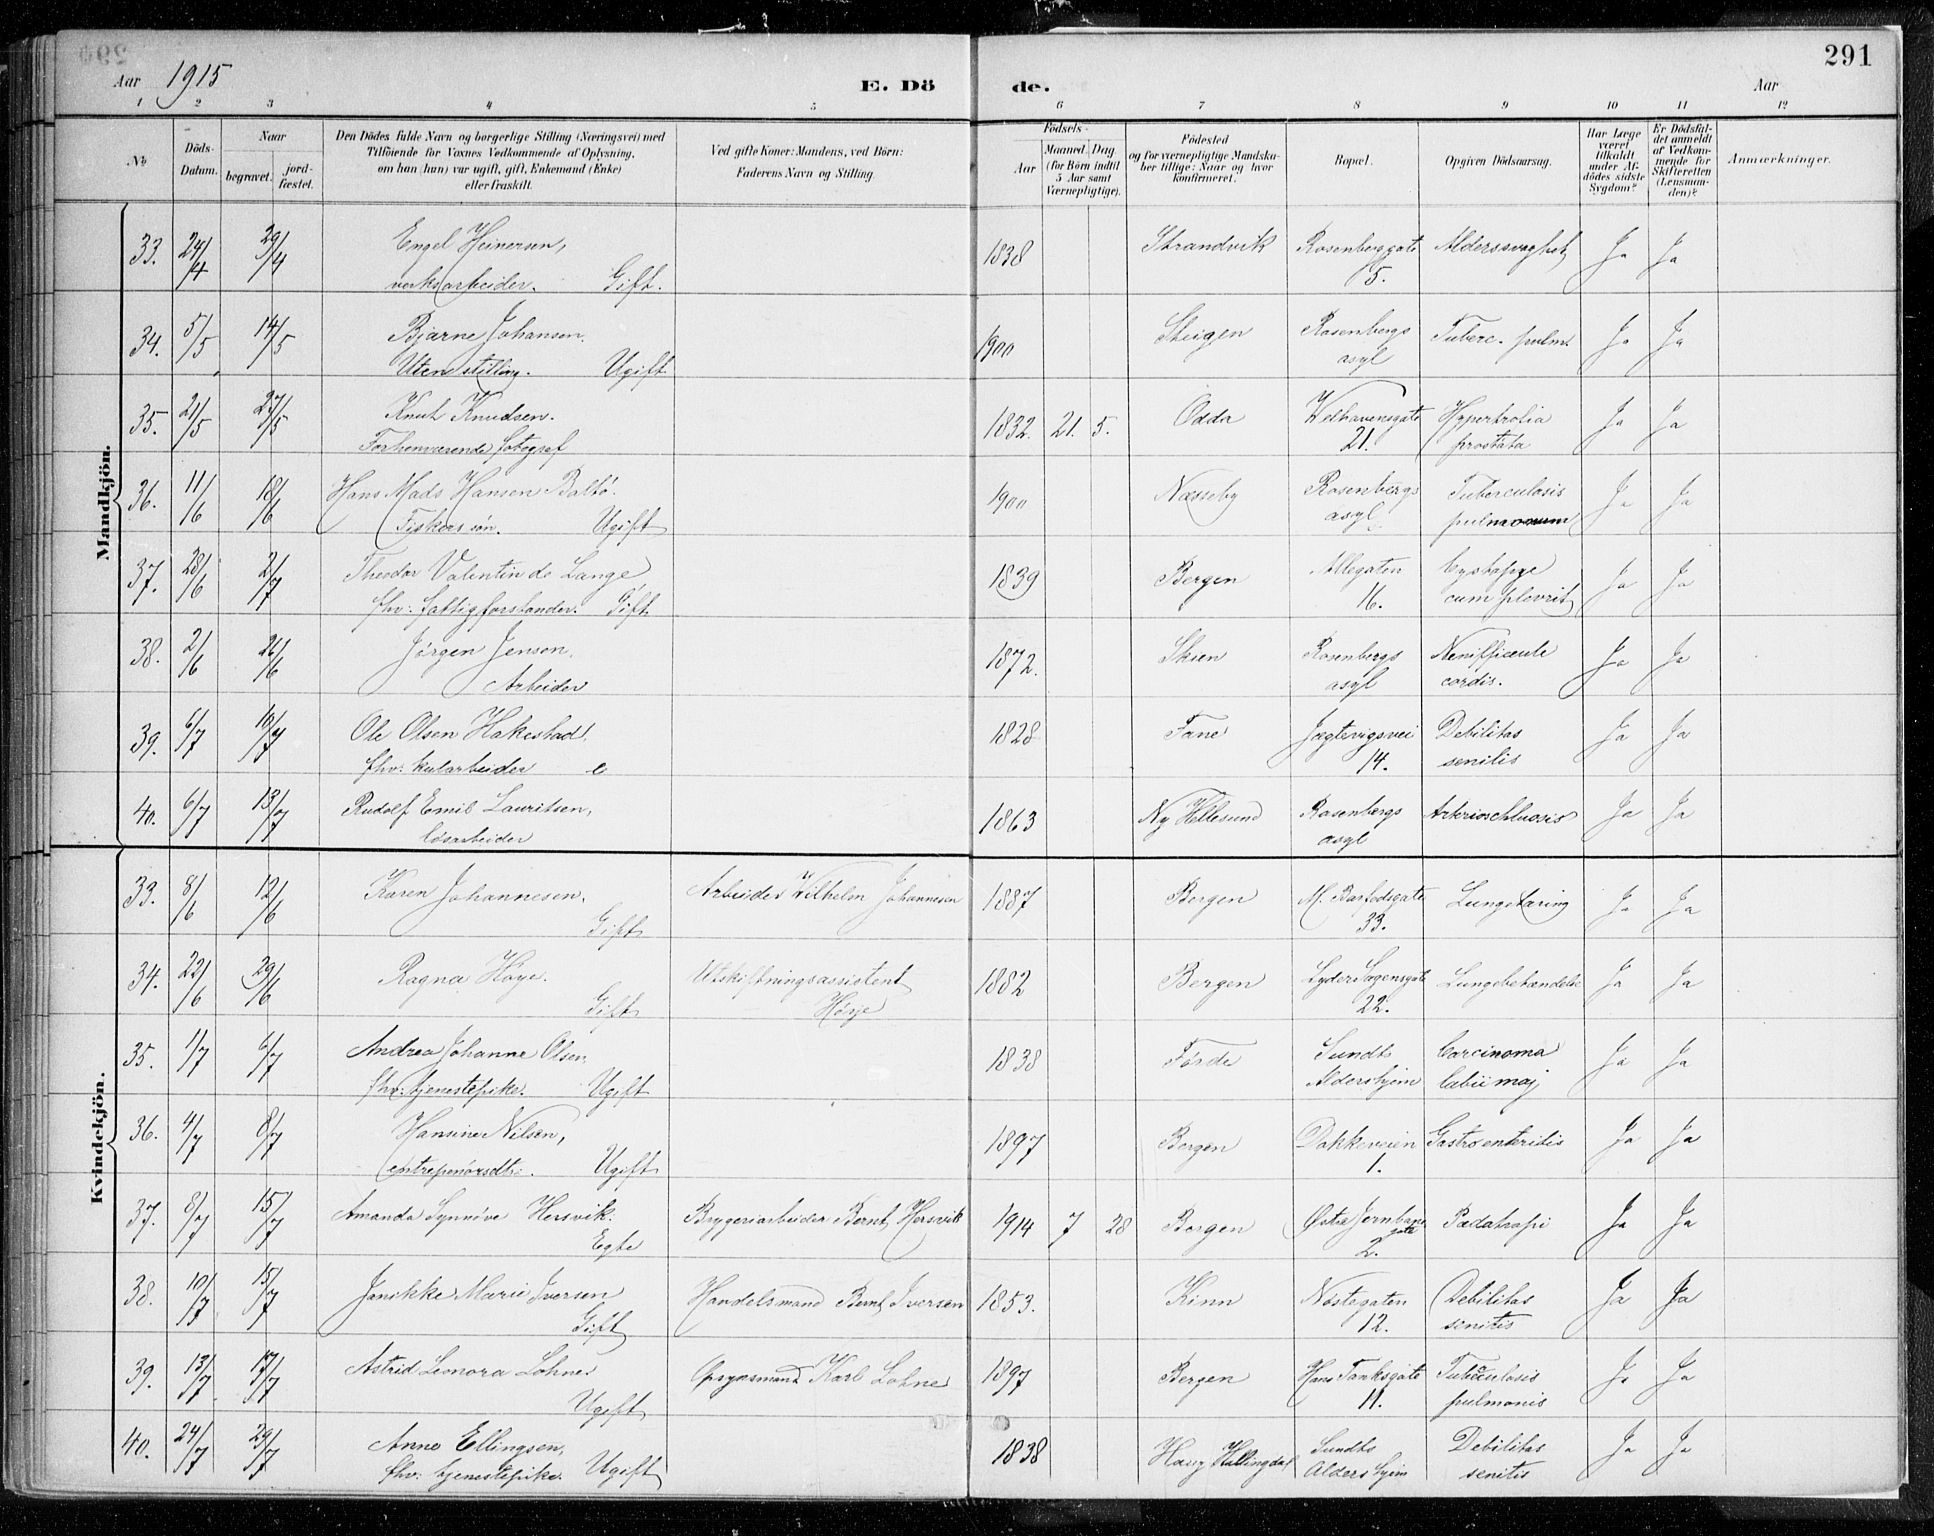 291
Aar 1915
E. Döde.
Aar
1 2 3 4 5 6 7 8 9 10 11 12
No
Döds-Datum.
Naar
begravet.
jord-fæstet.
Den Dödes fulde Navn og borgerlige Stilling (Næringsvei) med
Tilföiende for Voxnes Vedkommende af Oplysning,
om han (hun) var ugift, gift, Enkemand (Enke)
eller fraskilt.
Ved gifte Koner: Mandens, ved Börn:
Faderens Navn og Stilling.
Födsels-
Aar
Maaned. Dag.
(for Börn indtil
5 Aar samt
Værnepligtige).
Födested
og for værnepligtige Mandska-
ber tillige: Naar og hvor
konfirmeret.
Bopæl.
Opgiven Dödsaarsag.
Har Læge
været
tilkaldt
under Af-
dödes sidste
Sygdom?
Er Dödsfal-
det anmeldt
af Vedkom-
mende for
Skifteretten
(Lensman-
den)?
Anmærkninger.
Mandkjön.
33. 24/4 29/4 Engel Heinersen, 1838 Strandvik Rosenbergsgate Alderssvaghet Ja Ja
verksarbeider. Gift. 5.
34. 5/5 14/5 Bjarne Johansen. 1900 Steigen Rosenbergs Tuberc. pulm. Ja Ja
Uten stilling. Ugift asyl
35. 21/5 27/5 Knut Knudsen. 1832. 21. 5. Odda Welhavensgate Hypertrofia Ja Ja
Forhenværende fotograf 21. prostata
36. 11/6 18/6 Hans Mads Hansen Baltö. 1900 Næsseby Rosenbergs Tuberculosis Ja Ja
Fiskers søn. Ugift asyl pulmonum
37. 28/6 2/7 Theodor Valentin de Lange 1839 Bergen Allegaten Ja Ja
fhv: fattigforstander. Gift 16. cum plevrit
38. 2/6 26/6 Jörgen Jenson. 1872. Skien Rosenbergs Ja Ja
Arbeider asyl cordis.
39. 6/7 10/7 Ole Olsen Hakestad. 1828 Fane Jægtevigsvei Debilitas Ja Ja
fhv: kularbeider e 14. senilis
40. 6/7 13/7 Rudolf Emil Lauritsen, 1863 Ny Hellesund Rosenbergs Ja Ja
løsarbeider asyl
Kvindekjön.
33. 8/6 12/6 Karen Johannesen. Arbeider Wilhelm Johannesen 1887 Bergen M. Barfodsgate Lungetæring Ja Ja
Gift 33.
34. 22/6 29/6 Ragna Høye. Utskiftningsassistent 1882 Bergen Lyder Sagensgate Ja Ja
Gift Høye 22.
35. 1/7 6/7 Andrea Johanne Olsen, 1838 Førde Sundts Carcinoma Ja Ja
fhv: tjenestepike. Ugift Aldershjem labii maj
36. 4/7 8/7 Hansine Nilsen, 1897 Bergen Dokkeveien Gastroenteritis Ja Ja
entrepenørsdt:. Ugift 1.
37. 8/7 15/7 Amanda Synnöve Hersvik. Bryggeriarbeider Bernt Hersvik 1914 7 28 Bergen Østre Jernbane Pædatrofi Ja Ja
Egte gate 2.
38. 10/7 15/7 Janikke Marie Iversen Handelsmand Bernt Iversen 1853. Kinn Nøstegaten Debilitas Ja Ja
Gift 12. senilis
39. 13/7 17/7 Astrid Leonora Lohne Opsynsmand Karl Lohne 1897 Bergen Hans Tanksgate Tuberculosis Ja Ja
Ugift 11. pulmonis
40. 24/7 29/7 Anne Ellingsen, 1838 Haug Hallingdal Sundts Debilitas Ja Ja
fhv: tjenestepike. Ugift Aldershjem senilis